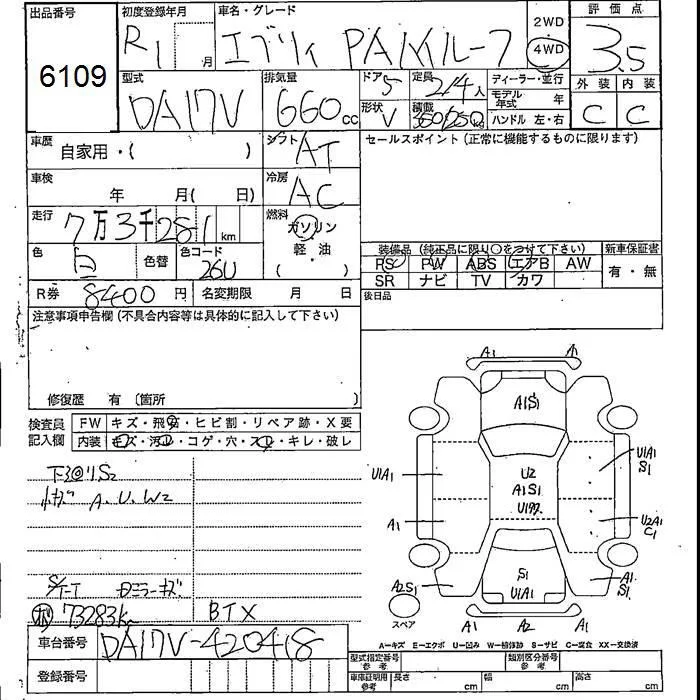 出品番号
6109
初度登録年月
R1 月
車名・グレード
エブリィ PAハイルーフ
2WD
4WD
評価点
3.5
外装 内装
C C
型式
DA17V
排気量
660 cc
ドア 5
形状 V
定員 2/4人
積載 350/250kg
ディーラー・並行
モデル年式 年
ハンドル 左・右
車歴
自家用・( )
シフト AT
セールスポイント(正常に機能するものに限ります)
車検
年 月( 日)
冷房 AC
走行
7万3千281 km
燃料
ガソリン
軽・油
( )
色 白 色替 色コード 26U
装備品(純正品に限り○をつけて下さい)
新車保証書
PS PW ABS エアB AW
SR ナビ TV カワ
有・無
R券 8400 円 名変期限 月 日
後日品
注意事項申告欄(不具合内容等は具体的に記入して下さい)
修復歴 有 (箇所 )
検査員記入欄
FW キズ・飛石・ヒビ割・リペア跡・X要
内装 キズ・汚れ・コゲ・穴・スレ・キレ・破レ
下廻りS2
小キズ A.U.W2
キズ
73283K
BTX
車台番号 DA17V-420418
登録番号
A1 A1
A1S1
U1A1
A1
U2
A1S1
U1A1
S1
U2A1
C1
A2S1
S1
U1A1
A1
S1
スペア
A1 A2 A1
A-キズ E-エクボ U-凹み W-補修跡 S-サビ C-腐食 XX-交換済
型式指定番号 参考
類別区分番号 参考
車庫証明用 参考 長さ cm 幅 cm 高さ cm